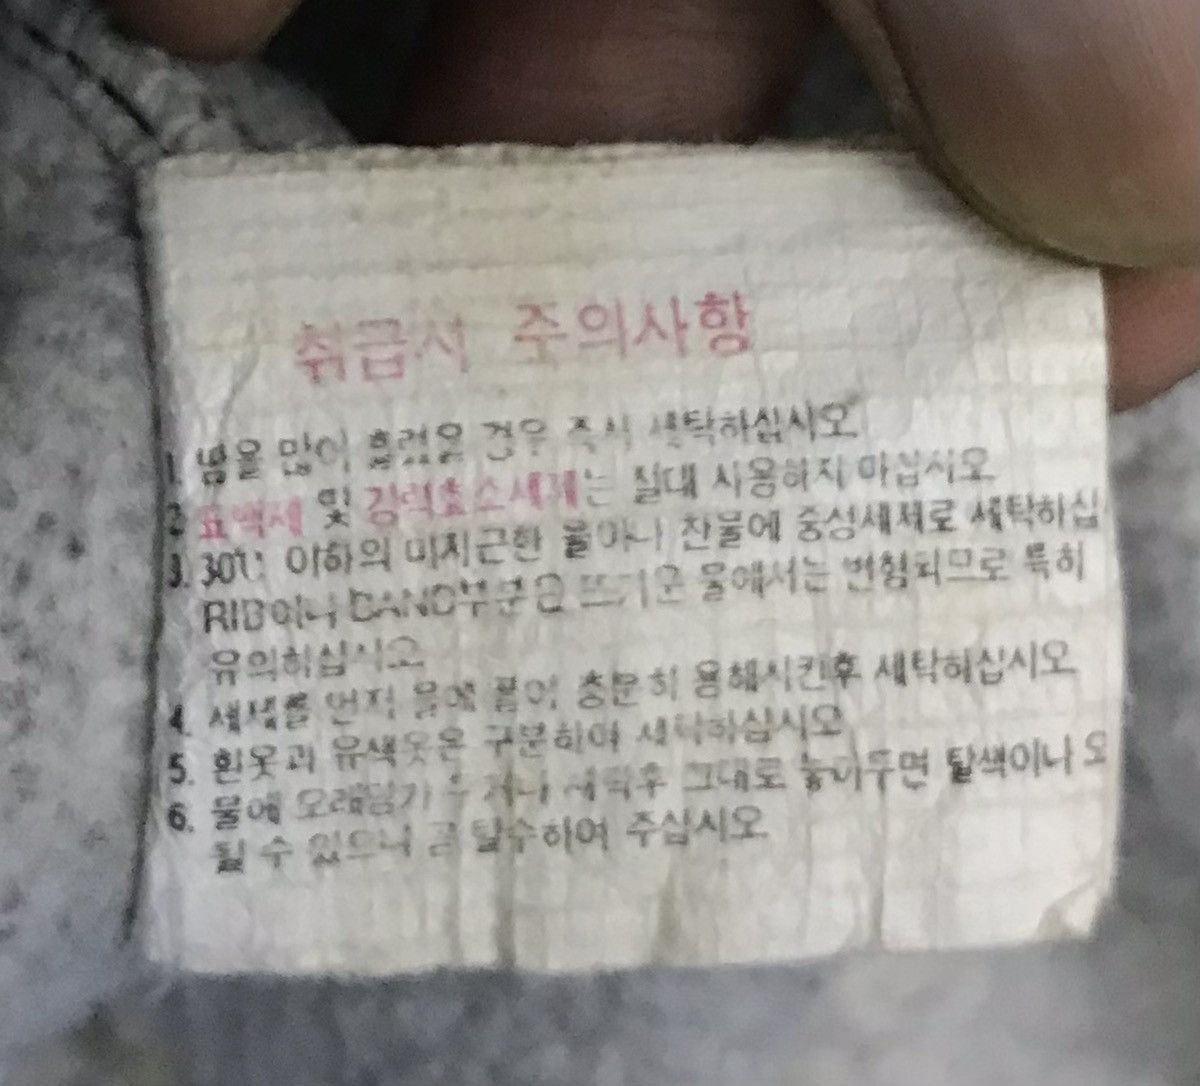 취급시 주의사항
1. 땀을 많이 흘렸을 경우 즉시 세탁하십시오
2. 표백제 및 강력효소세제는 절대 사용하지 마십시오
3. 30℃ 이하의 미지근한 물이나 찬물에 중성세제로 세탁하십
RIB이나 BAND부분은 뜨거운 물에서는 변형되므로 특히
유의하십시오
4. 세제를 먼저 물에 풀어 충분히 용해시킨후 세탁하십시오
5. 흰옷과 유색옷은 구분하여 세탁하십시오
6. 물에 오래담가 두거나 세탁후 그대로 놓아두면 탈색이나 오
될 수 있으니 곧 탈수하여 주십시오